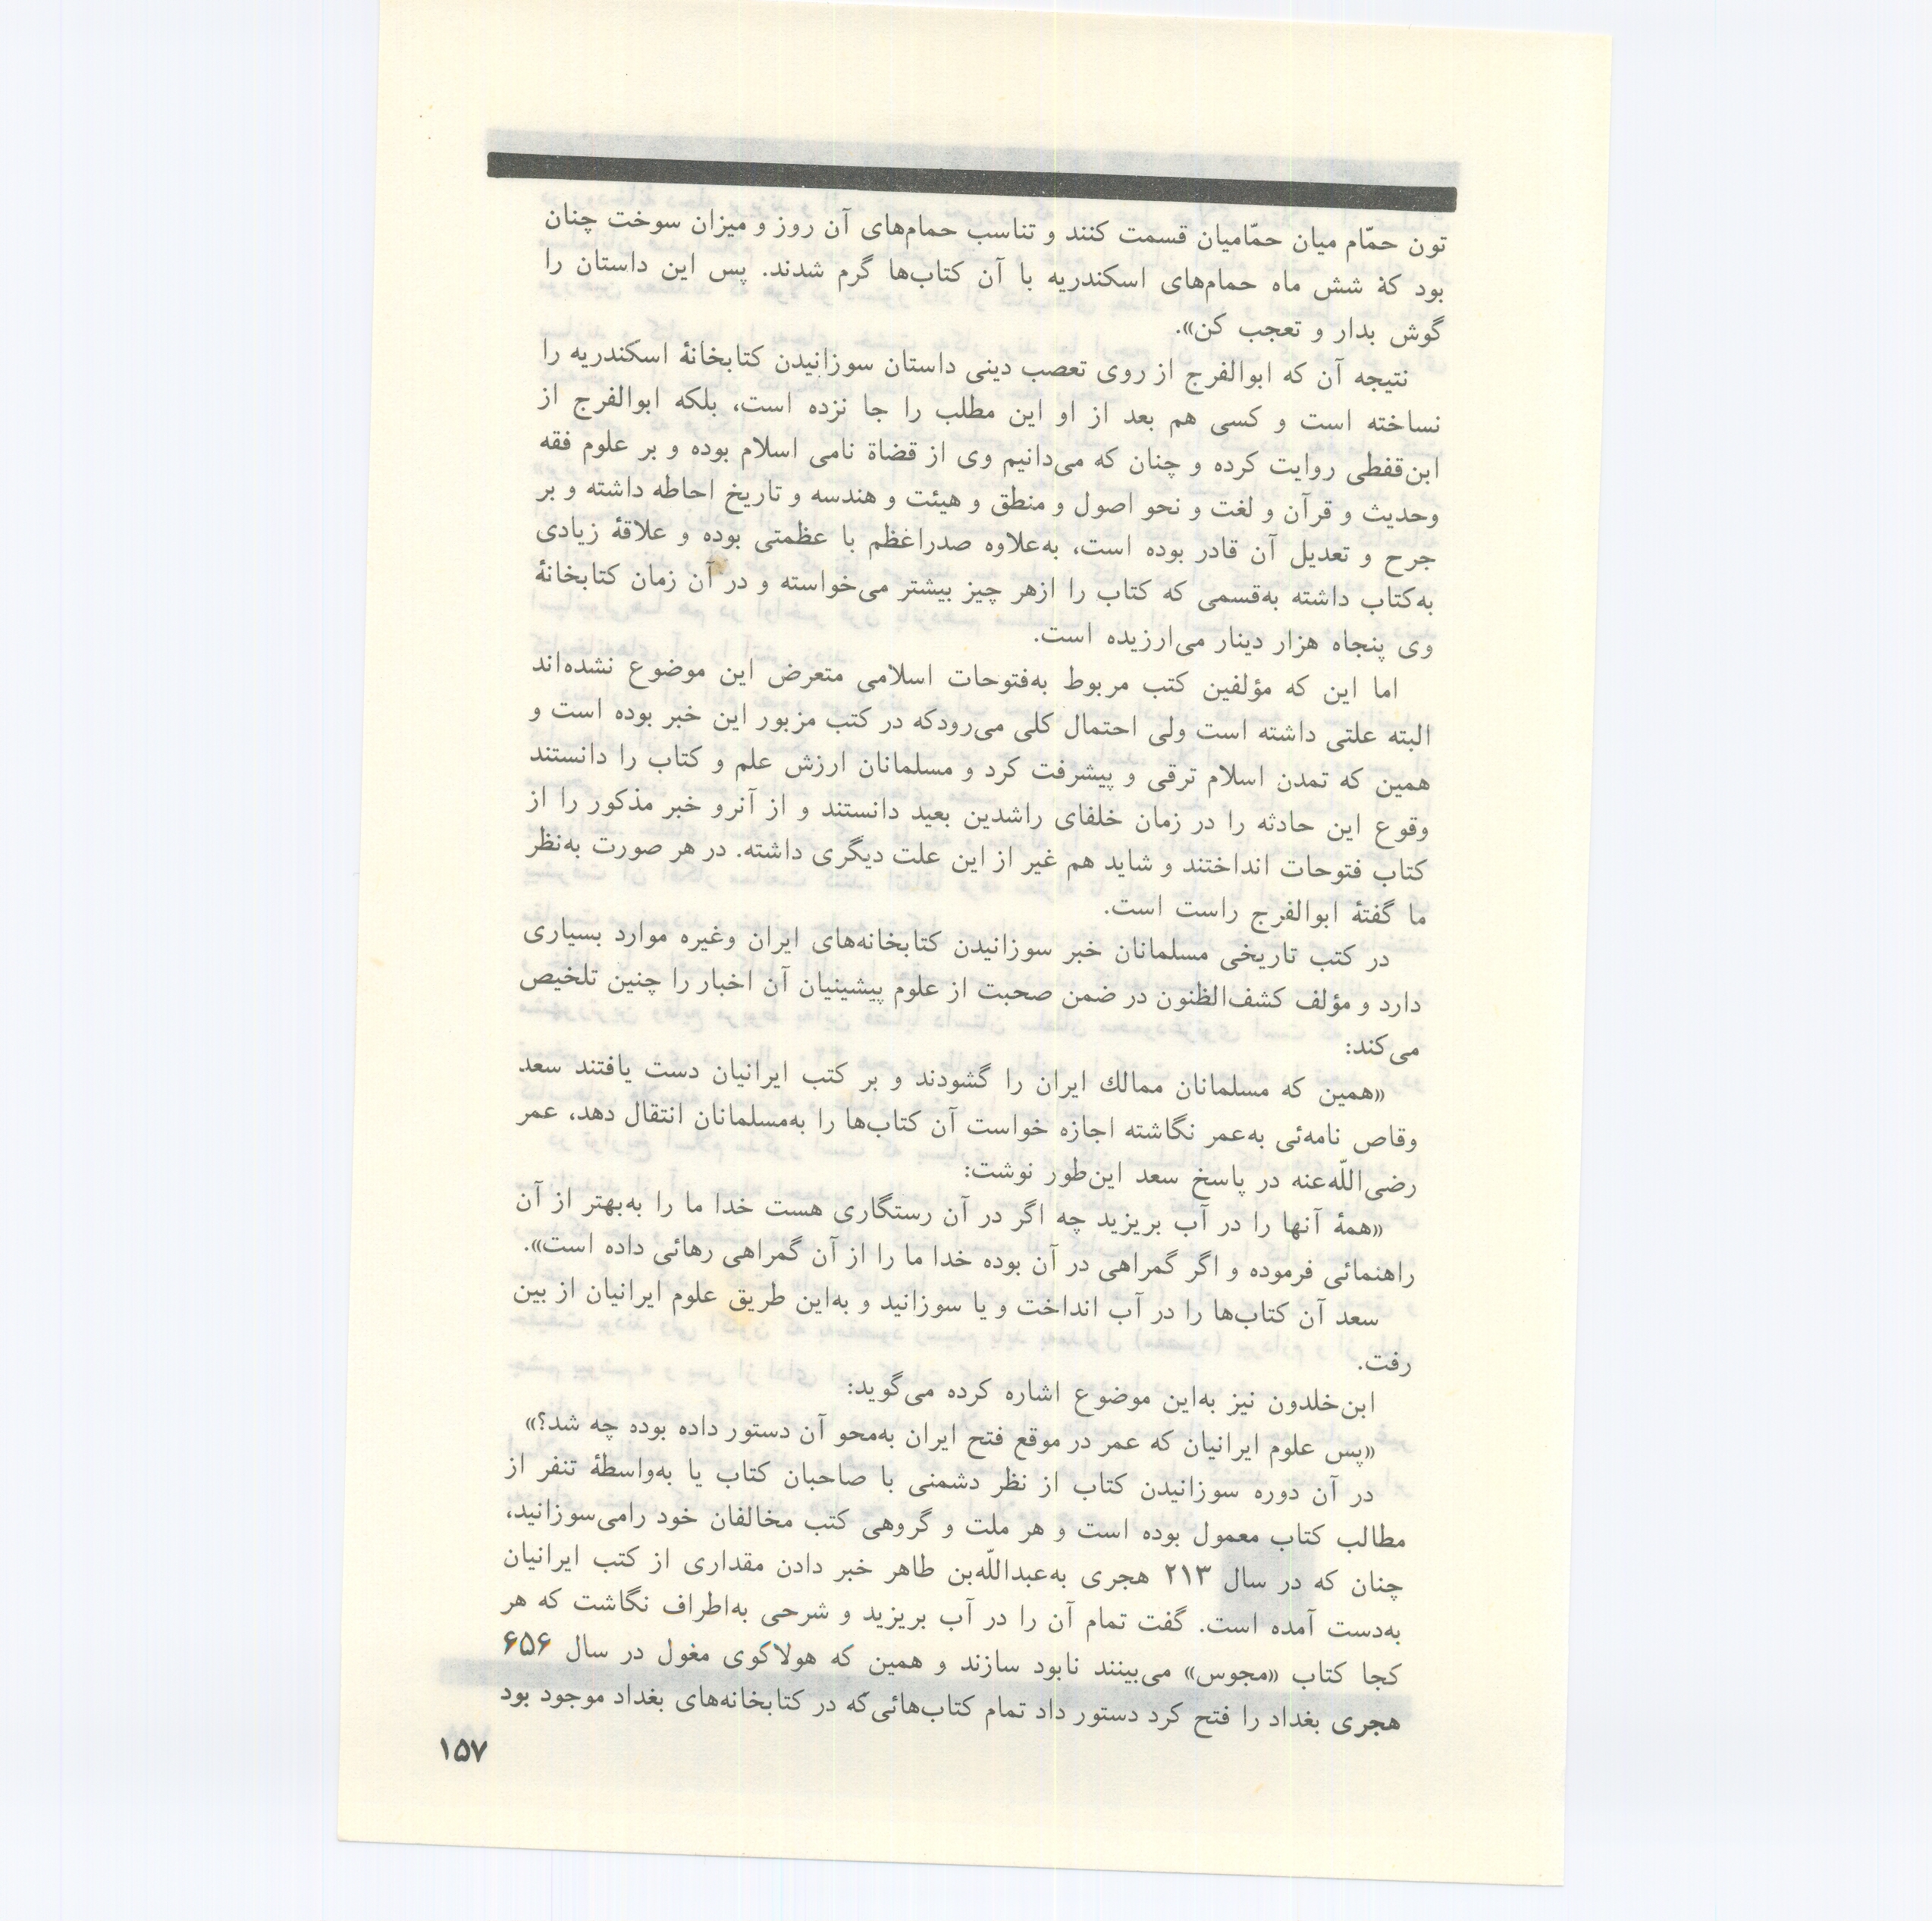 تون حمّام میان حمّامیان قسمت کنند و تناسب حمام‌های آن روز و میزان سوخت چنان
بود کهٔ شش ماه حمام‌های اسکندریه با آن کتاب‌ها گرم شدند. پس این داستان را
گوش بدار و تعجب کن».
نتیجه آن که ابوالفرج از روی تعصب دینی داستان سوزانیدن کتابخانهٔ اسکندریه را
نساخته است و کسی هم بعد از او این مطلب را جا نزده است، بلکه ابوالفرج از
ابن‌قفطی روایت کرده و چنان که می‌دانیم وی از قضاة نامی اسلام بوده و بر علوم فقه
وحدیث و قرآن و لغت و نحو اصول و منطق و هیئت و هندسه و تاریخ احاطه داشته و بر
جرح و تعدیل آن قادر بوده است، به‌علاوه صدراغظم با عظمتی بوده و علاقهٔ زیادی
به‌کتاب داشته به‌قسمی که کتاب را ازهر چیز بیشتر می‌خواسته و در آن زمان کتابخانهٔ
وی پنجاه هزار دینار می‌ارزیده است.
اما این که مؤلفین کتب مربوط به‌فتوحات اسلامی متعرض این موضوع نشده‌اند
البته علتی داشته است ولی احتمال کلی می‌رودکه در کتب مزبور این خبر بوده است و
همین که تمدن اسلام ترقی و پیشرفت کرد و مسلمانان ارزش علم و کتاب را دانستند
وقوع این حادثه را در زمان خلفای راشدین بعید دانستند و از آنرو خبر مذکور را از
کتاب فتوحات انداختند و شاید هم غیر از این علت دیگری داشته. در هر صورت به‌نظر
ما گفتهٔ ابوالفرج راست است.
در کتب تاریخی مسلمانان خبر سوزانیدن کتابخانه‌های ایران وغیره موارد بسیاری
دارد و مؤلف کشف‌الظنون در ضمن صحبت از علوم پیشینیان آن اخبار را چنین تلخیص
می‌کند:
«همین که مسلمانان ممالك ایران را گشودند و بر کتب ایرانیان دست یافتند سعد
وقاص نامه‌ئی به‌عمر نگاشته اجازه خواست آن کتاب‌ها را به‌مسلمانان انتقال دهد، عمر
رضی‌اللّه‌عنه در پاسخ سعد این‌طور نوشت:
«همهٔ آنها را در آب بریزید چه اگر در آن رستگاری هست خدا ما را به‌بهتر از آن
راهنمائی فرموده و اگر گمراهی در آن بوده خدا ما را از آن گمراهی رهائی داده است».
سعد آن کتاب‌ها را در آب انداخت و یا سوزانید و به‌این طریق علوم ایرانیان از بین
رفت.
ابن‌خلدون نیز به‌این موضوع اشاره کرده می‌گوید:
«پس علوم ایرانیان که عمر در موقع فتح ایران به‌محو آن دستور داده بوده چه شد؟»
در آن دوره سوزانیدن کتاب از نظر دشمنی با صاحبان کتاب یا به‌واسطهٔ تنفر از
مطالب کتاب معمول بوده است و هر ملت و گروهی کتب مخالفان خود رامی‌سوزانید،
چنان که در سال ۲۱۳ هجری به‌عبداللّه‌بن طاهر خبر دادن مقداری از کتب ایرانیان
به‌دست آمده است. گفت تمام آن را در آب بریزید و شرحی به‌اطراف نگاشت که هر
کجا کتاب «مجوس» می‌بینند نابود سازند و همین که هولاکوی مغول در سال ۶۵۶
هجری بغداد را فتح کرد دستور داد تمام کتاب‌هائی‌که در کتابخانه‌های بغداد موجود بود
۱۵۷